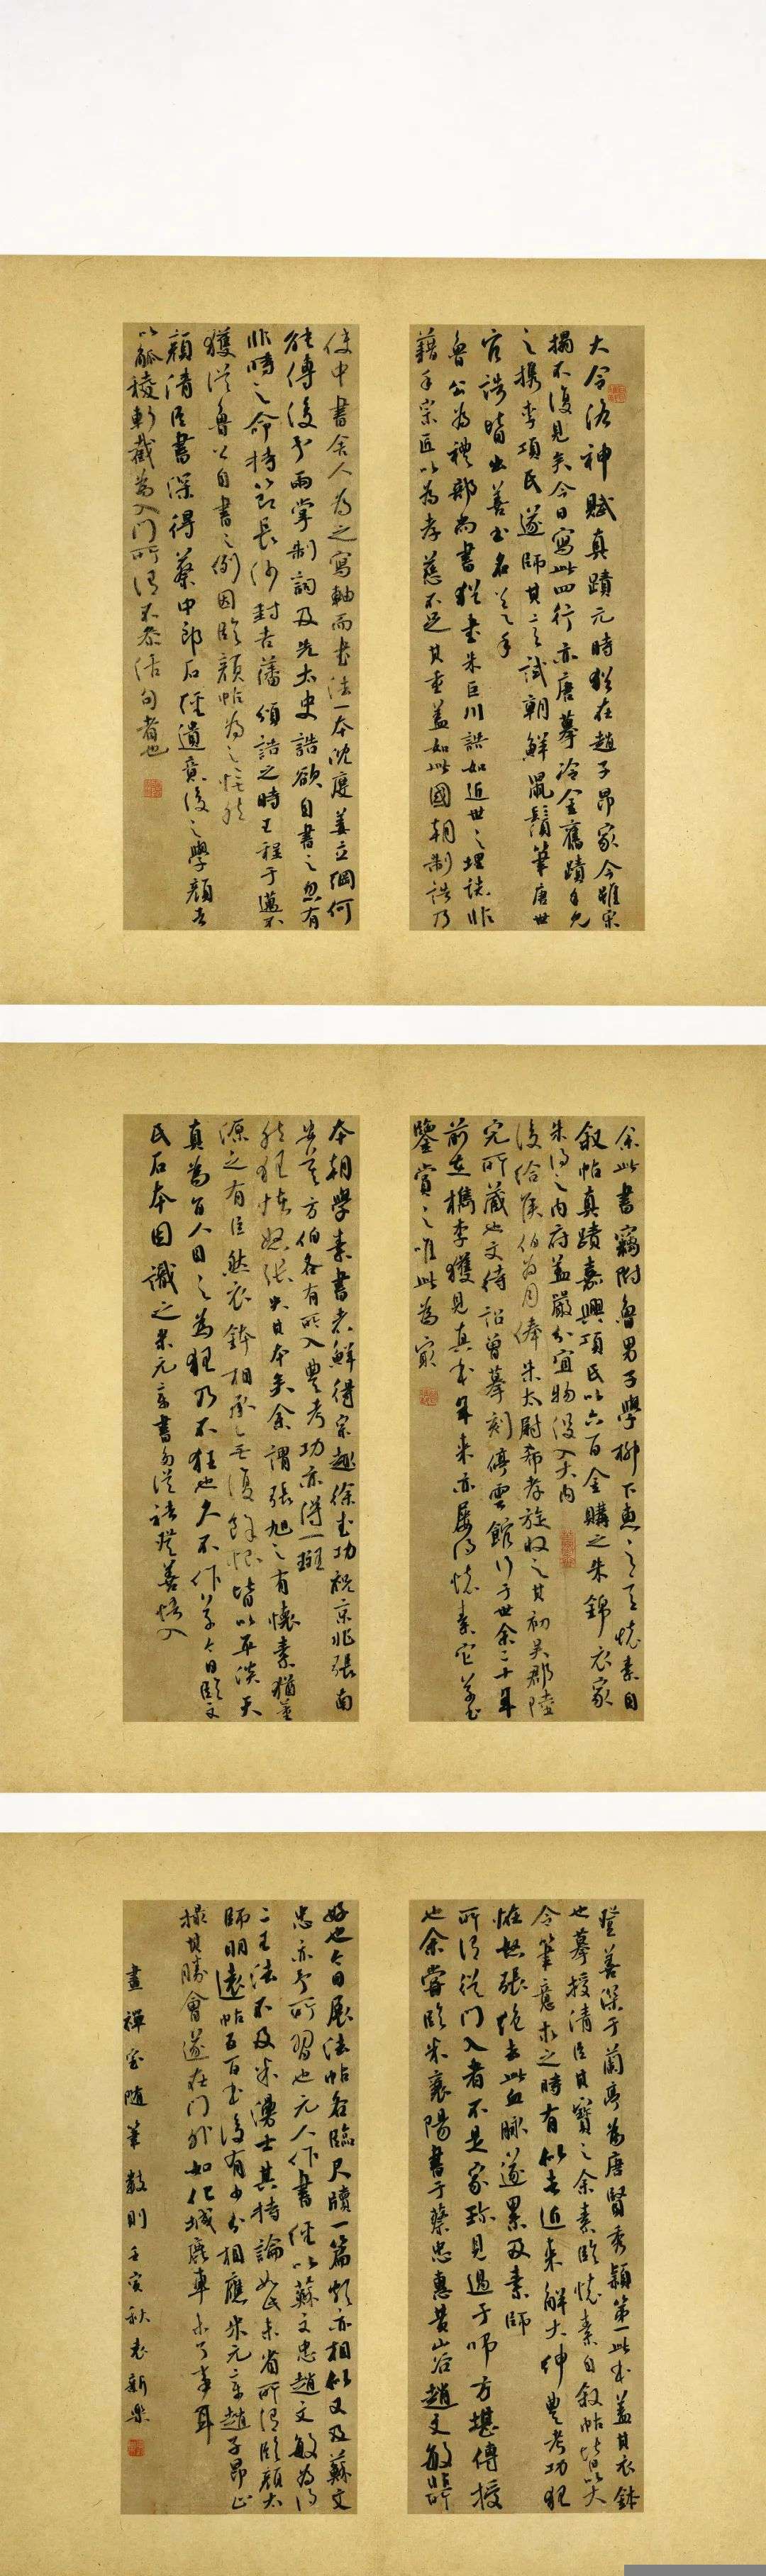 大令洛神賦真蹟元時猶在趙子昂家今雖宋
搨不復見矣今日寫此四行亦唐摹冷金舊蹟自允
之攜李項氏遂師其意試朝鮮鼠鬚筆唐世
官誥皆出善書名公之手
魯公為禮部尚書猶書朱巨川誥如近世之埋誌非
藉手宗匠以為孝慈不足其重蓋如此國朝制誥乃
使中書舍人為之寫軸而書法一本沈度姜立綱何
能傳後予兩掌制詞及先太史誥欲自書之忽有
非時之命持節長沙封吉藩頒誥之時王程于邁不
獲從魯公自書之例因臨顏帖為之悵然
顏清臣書深得蔡中郎石經遺意後之學顏者
以觚稜斬截為入門所謂不參活句者也
余此書竊附魯男子學柳下惠之意懷素自
敘帖真蹟嘉興項氏以六百金購之朱錦衣家
朱得之內府蓋嚴分宜物沒入大內
後給侯伯為月俸朱太尉希孝旋收之其初吳郡陸
完所藏也文待詔曾摹刻停雲館行于世余二十年
前在檇李獲見真本年來亦屢得懷素它草書
鑒賞之唯此為最
本朝學素書者鮮得宗趣徐武功祝京兆張南
安莫方伯各有所入豐考功亦得一斑
然狂怪怒張失其本矣余謂張旭之有懷素猶董
源之有巨然衣鉢相承無復餘恨皆以平淡天
真為旨人目之為狂乃不狂也久不作草今日臨文
氏石本因識之米元章書多從褚登善悟入
登善深于蘭亭為唐賢秀穎第一此本蓋其衣鉢
也摹授清臣其寶之余素臨懷素自敘帖皆以大
令筆意求之時有似者近來解大紳豐考功狂
怪怒張絕去此血脈遂累及素師
所謂從門入者不是家珍見過于師方堪傳授
也余嘗臨米襄陽書于蔡忠惠黃山谷趙文敏非所
好也今日展法帖各臨尺牘一篇頗亦相似又及蘇文
忠亦予所習也元人作書經以蘇文忠趙文敏為得
二王法不及米漫士其持論如此未省所謂臨顏太
師明遠帖五百本後有少分相應米元章趙子昂止
撮其勝會遂在門外如化城鹿車未了事耳
畫禪室隨筆數則壬寅秋老新樂